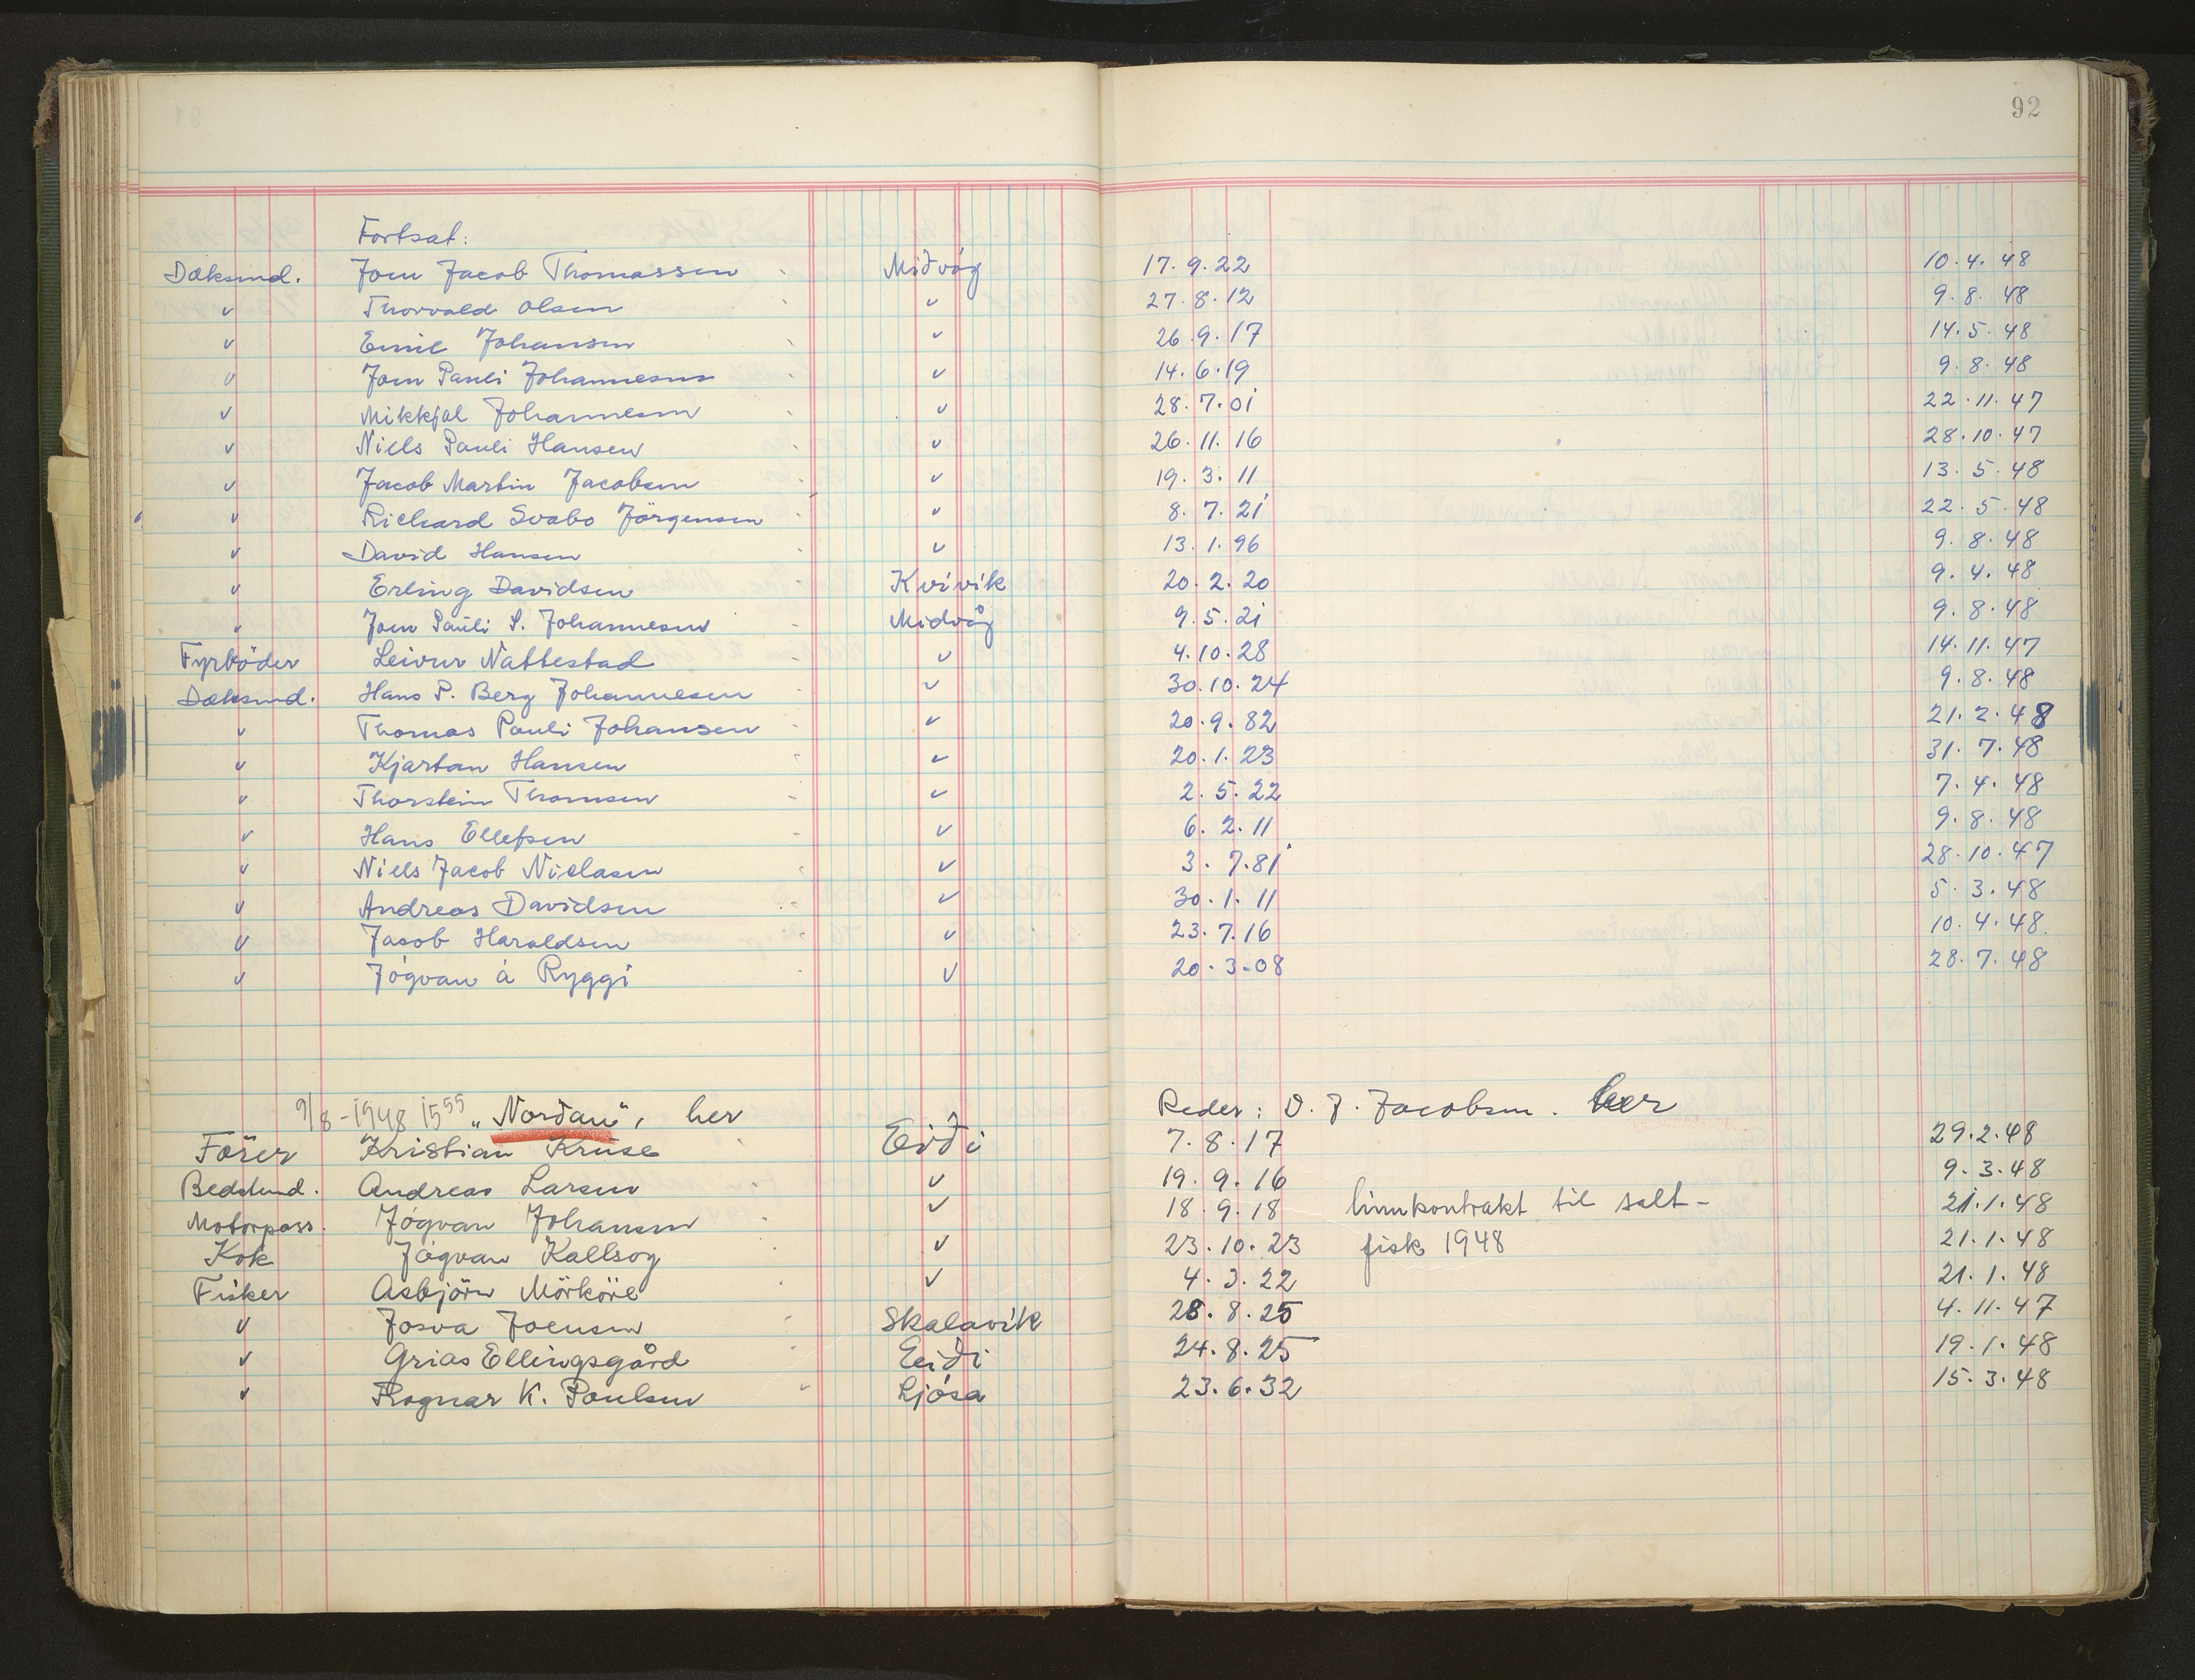 92
Fortsat:
Dæksmd. Joen Jacob Thomassen Miðvág 17.9.22 10.4.48
" Thorvald Olsen " 27.8.12 9.8.48
" Emil Johansen " 26.9.17 14.5.48
" Joen Pauli Johannesen " 14.6.19 9.8.48
" Mikkjal Johannesen " 28.7.01 22.11.47
" Niels Pauli Hansen " 26.11.16 28.10.47
" Jacob Martin Jacobsen " 19.3.11 13.5.48
" Richard Svabo Jörgensen " 8.7.21 22.5.48
" David Hansen " 13.1.96 9.8.48
" Erling Davidsen Kvívik 20.2.20 9.4.48
" Joen Pauli S. Johannesen Midvåg 9.5.21 9.8.48
Fyrböder Leivur Nattestad " 4.10.28 14.11.47
Dæksmd. Hans P. Berg Johannesen " 30.10.24 9.8.48
" Thomas Pauli Johansen " 20.9.82 21.2.48
" Kjartan Hansen " 20.1.23 31.7.48
" Thorstein Thomsen " 2.5.22 7.4.48
" Hans Ellefsen " 6.2.11 9.8.48
" Niels Jacob Nielasen " 3.7.81 28.10.47
" Andreas Davidsen " 30.1.11 5.3.48
" Jacob Haraldsen " 23.7.16 10.4.48.
" Jógvan á Ryggi " 20.3.08 28.7.48
9/8-1948 15⁵⁵ "Nordan", her Reder: J. Jacobsen. her
Förer Kristian Kruse Eiði 7.8.17 29.2.48
Bedstmd. Andreas Larsen " 19.9.16 9.3.48
Motorpass. Jógvan Johansen " 18.9.18 linukontrakt til salt- 21.1.48
Kok Jógvan Kallsoy " 23.10.23 fisk 1948 21.1.48
Fisker Asbjörn Mörköre " 4.3.22 21.1.48
" Josva Joensen Skalavík 28.8.25 4.11.47
" Grias Ellingsgård Eiði 24.8.25 19.1.48
" Ragnar K. Poulsen Ljósa 23.6.32 15.3.48